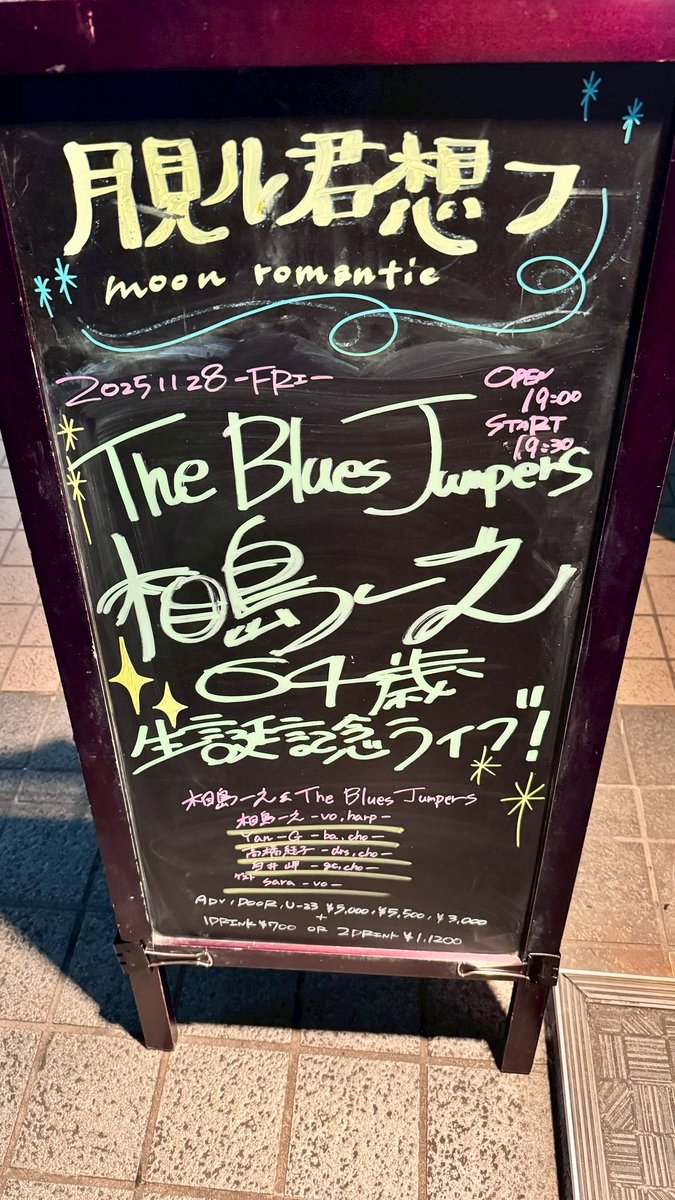 月見ル君想フ
moon romantic
2025 11 28 -FRI-
OPEN
19:00
START
19:30
The Blues Jumpers
相島一之
64歳
生誕記念ライブ!
相島一之 & The Blues Jumpers
相島一之 -vo.harp-
Yan-G -ba.cho-
高橋結子 -drs.cho-
臼井岬 -gt.cho-
ゲスト sara -vo-
ADV, DOOR, U-23 ¥5,000, ¥5,500, ¥3,000
+
1DRINK ¥700 OR 2DRINK ¥1,1200